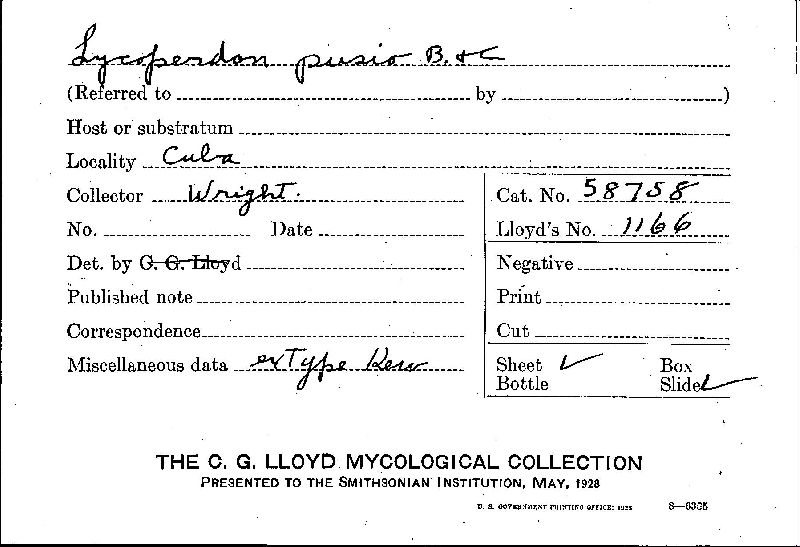 Lycoperdon pusio B. & C
(Referred to by )
Host or substratum
Locality Cuba
Collector Wright.
Cat. No. 58758
No. Date
Lloyd's No. 1166
Det. by C. G. Lloyd
Negative
Published note
Print
Correspondence
Cut
Miscellaneous data ex Type Kew
Sheet ✓ Box
Bottle Slide ✓
THE C. G. LLOYD MYCOLOGICAL COLLECTION
PRESENTED TO THE SMITHSONIAN INSTITUTION, MAY, 1928
U. S. GOVERNMENT PRINTING OFFICE: 1928